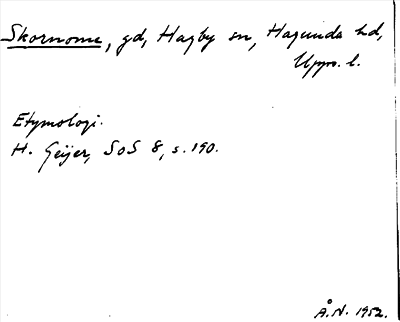 Skornome, gd, Hagby sn, Hagunda hd,
Upps. l.
Etymologi.
H. Geijer, SoS 8, s. 190.
Å.N. 1952.